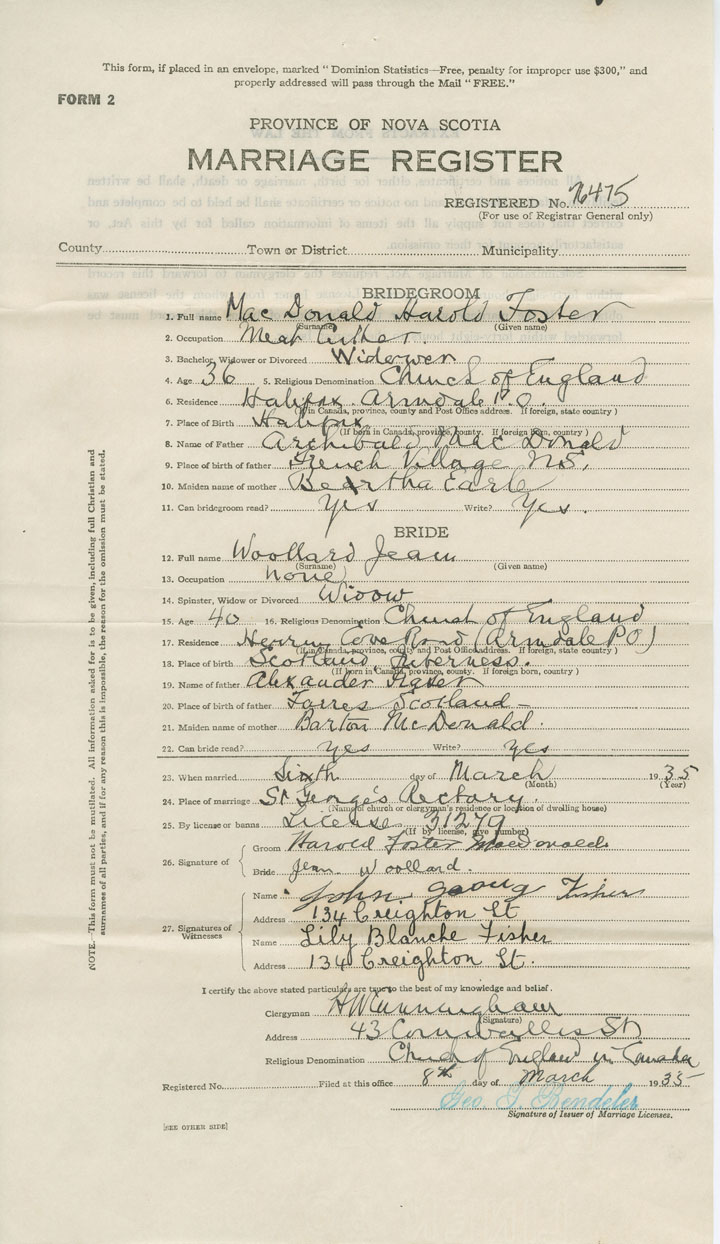 This form, if placed in an envelope, marked "Dominion Statistics—Free, penalty for improper use $300," and
properly addressed will pass through the Mail "FREE."
FORM 2
PROVINCE OF NOVA SCOTIA
MARRIAGE REGISTER
REGISTERED No. 76475
(For use of Registrar General only)
County Town or District Municipality
BRIDEGROOM
1. Full name Mac Donald Harold Foster
(Surname) (Given name)
2. Occupation Meat Cutter.
3. Bachelor, Widower or Divorced Widower
4. Age 36 5. Religious Denomination Church of England
6. Residence Halifax. Armdale P.O.
(If in Canada, province, county and Post Office address. If foreign, state country)
7. Place of Birth Halifax
(If born in Canada, province, county. If foreign born, country)
8. Name of Father Archibald Mac Donald
9. Place of birth of father French Village N.S.
10. Maiden name of mother Beartha Earle
11. Can bridegroom read? Yes Write? Yes.
BRIDE
12. Full name Woollard Jean
(Surname) (Given name)
13. Occupation none
14. Spinster, Widow or Divorced Widow
15. Age 40 16. Religious Denomination Church of England
17. Residence Herring Cove Road (Armdale PO)
(If in Canada, province, county and Post Office address. If foreign, state country)
18. Place of birth Scotland Inverness.
(If born in Canada, province, county. If foreign born, country)
19. Name of father Alexander Fraser
20. Place of birth of father Forres Scotland -
21. Maiden name of mother Barton McDonald.
22. Can bride read? yes Write? yes
23. When married Sixth day of March 1935
(Month) (Year)
24. Place of marriage St George's Rectory.
(Name of church or clergyman's residence or location of dwelling house)
25. By license or banns License 31279
(If by license, give number)
26. Signature of
Groom Harold Foster MacDonald
Bride Jean Woollard.
27. Signatures of Witnesses
Name John Fisher
Address 134 Creighton St
Name Lily Blanche Fisher
Address 134 Creighton St.
I certify the above stated particulars are true to the best of my knowledge and belief.
Clergyman H W Cunningham
(Signature)
Address 43 Cornwallis St
Religious Denomination Church of England in Canada
Registered No. Filed at this office 8th day of March 1935
Geo
Signature of Issuer of Marriage Licenses.
[SEE OTHER SIDE]
NOTE.—This form must not be mutilated. All information asked for is to be given, including full Christian and
surnames of all parties, and if for any reason this is impossible, the reason for the omission must be stated.